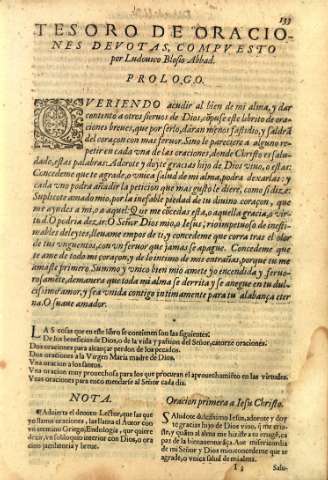 133
TESORO DE ORACIO-
NES DEVOTAS, COMPVESTO
por Ludouico Blosio Abbad.
PROLOGO.
QVERIENDO acudir al bien de mi alma, y dar
contento a otros sieruos de Dios, cõpuse este librito de ora-
ciones breues, que por serlo, daran menos fastidio, y saldrã
del coraçon con mas feruor. Sino le pareciere a alguno re-
petir en cada vna de las oraciones, donde Christo es salu-
dado, estas palabras: Adorote y doyte gracias hijo de Dios viuo, o estas:
Concedeme que te agrade, o vnica salud de mi alma, podra dexarlas: y
cada vno podra añadir la peticion que mas gusto le diere, como si dixe:
Suplicote amado mio, por la inefable piedad de tu diuino coraçon, que
me ayudes a mi, o a aquel: Que me cõcedas esta, o aquella gracia, o vir-
tud. O podria dezir: O Señor Dios mio, a Iesus, rio impetuoso de inesti-
mables deleytes, lleuame empos de ti, y concedeme que corra tras el olor
de tus vnguentos, con vn feruor que jamas se apague. Concedeme que
te ame de todo mi coraçon, y de lo intimo de mis entrañas, porque tu me
amaste primero. Summo y vnico bien mio amete yo encendida y feruo-
rosamẽte, de manera que toda mi alma se derrita y se anegue en tu dul-
cissimo amor, y sea vnida contigo intimamente para tu alabança eter
na. O suaue amador.
LAS cosas que en este libro se contienen son las siguientes.
De los beneficios de Dios, o de la vida y passion del Señor, catorze oraciones.
Dos oraciones para alcançar perdon de los pecados.
Dos oraciones a la Virgen Maria madre de Dios.
Vna oracion a los santos.
Vna oracion muy prouechosa para los que procuran el aprouechamiẽto en las virtudes.
Vnas oraciones para encomendarse al Señor cada dia.
NOTA.
Aduierta el deuoto Lector, que las que
yo llamo oraciones, las llama el Autor con
vn termino Griego, Endologia, que quiere
dezir, vn coloquio interior con Dios, o ora
cion jaculatoria y breue.
Oracion primera a Iesu Christo.
Saludote dulcissimo Iesus, adorote y doy
te gracias hijo de Dios viuo, q̃ me cria-
ste, y quãto al alma me hiziste a tu image, ca
paz de la bienauenturãça. Aue misericordia
de mi Señor y Dios mio: concedeme que te
agrade, o vnica salud de mi alma.
I 3
Salu-